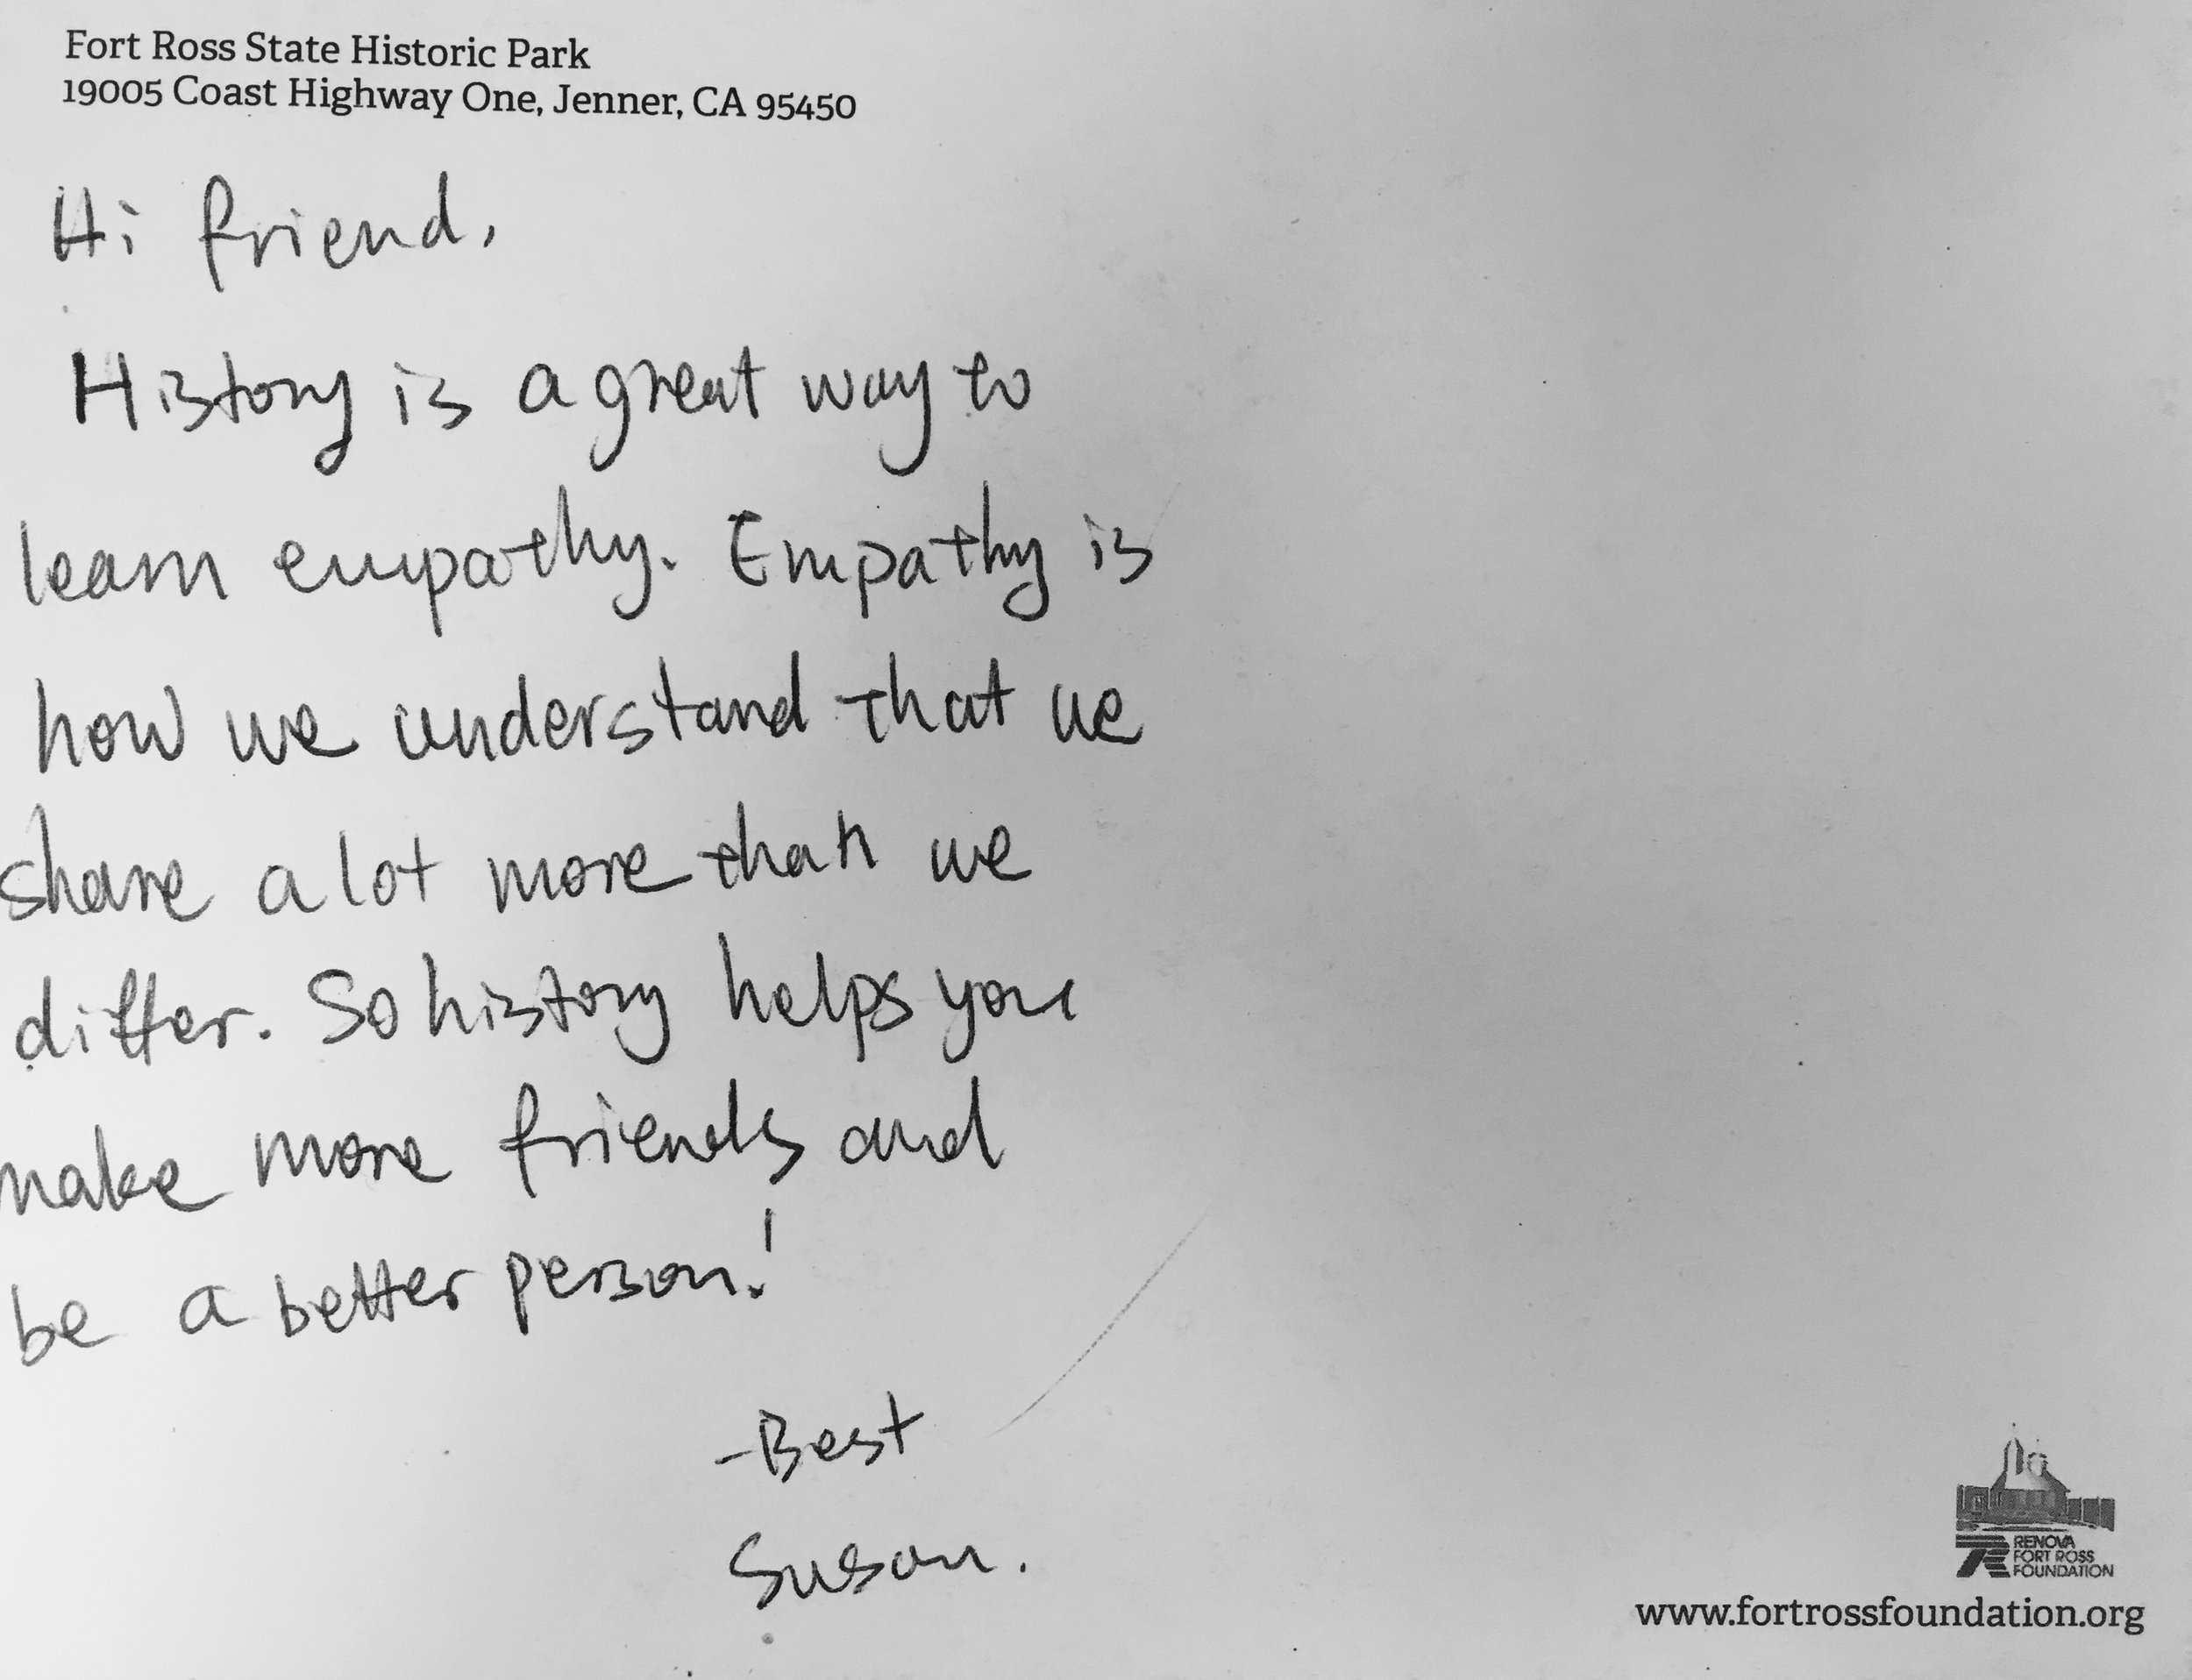 Fort Ross State Historic Park
19005 Coast Highway One, Jenner, CA 95450
Hi friend,
History is a great way to
learn empathy. Empathy is
how we understand that we
share a lot more than we
differ. So history helps you
make more friends and
be a better person!
-Best
Susan.
RENOVA
FORT ROSS
FOUNDATION
www.fortrossfoundation.org